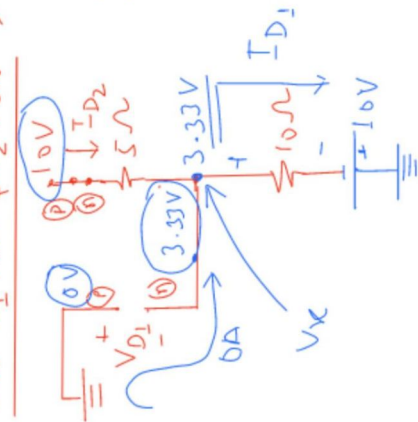 10V
I-D2
5Ω
P
n
3.33V
I-D1
+
10Ω
-
+
10V
3.33V
0V
n
+
VD1
-
0A
Vx